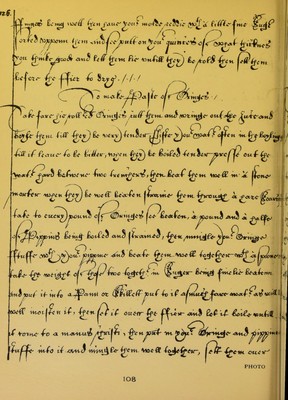 126.
being well then have your molde reddie with a little fine Sugr
upon them and so pull on your of what thicknes
you thinke good and lett them lie untill they be cold then sett them
before the ffier to drye. / . / . /
To make Paste of Oringes /
Take faire Oringes pull them and wringe out the Juice and
boyle them till they be very tender shifte your water often in the boylinge
till it leave to be bitter, when they be boiled tender presse out the
water hard betweene two trenchers, then beat them well in a stone
morter when they be well beaten straine them through a
take to every pound of Oringes so beaten, a pound and a halfe
of Pippins being boiled and strained, then mingle your Oringe
stuffe with your pippins and beate them well together with a spoone
take the weight of these two together in Suger being finelie beaten
and put it into a Pann or Skillett put to it asmuch faire water as will
well moisten it, then set it over the ffier and let it boile untill
it come to a manus christi, then put in your Oringe and pippin
stuffe into it and mingle them well together, sett them over
108
PHOTO